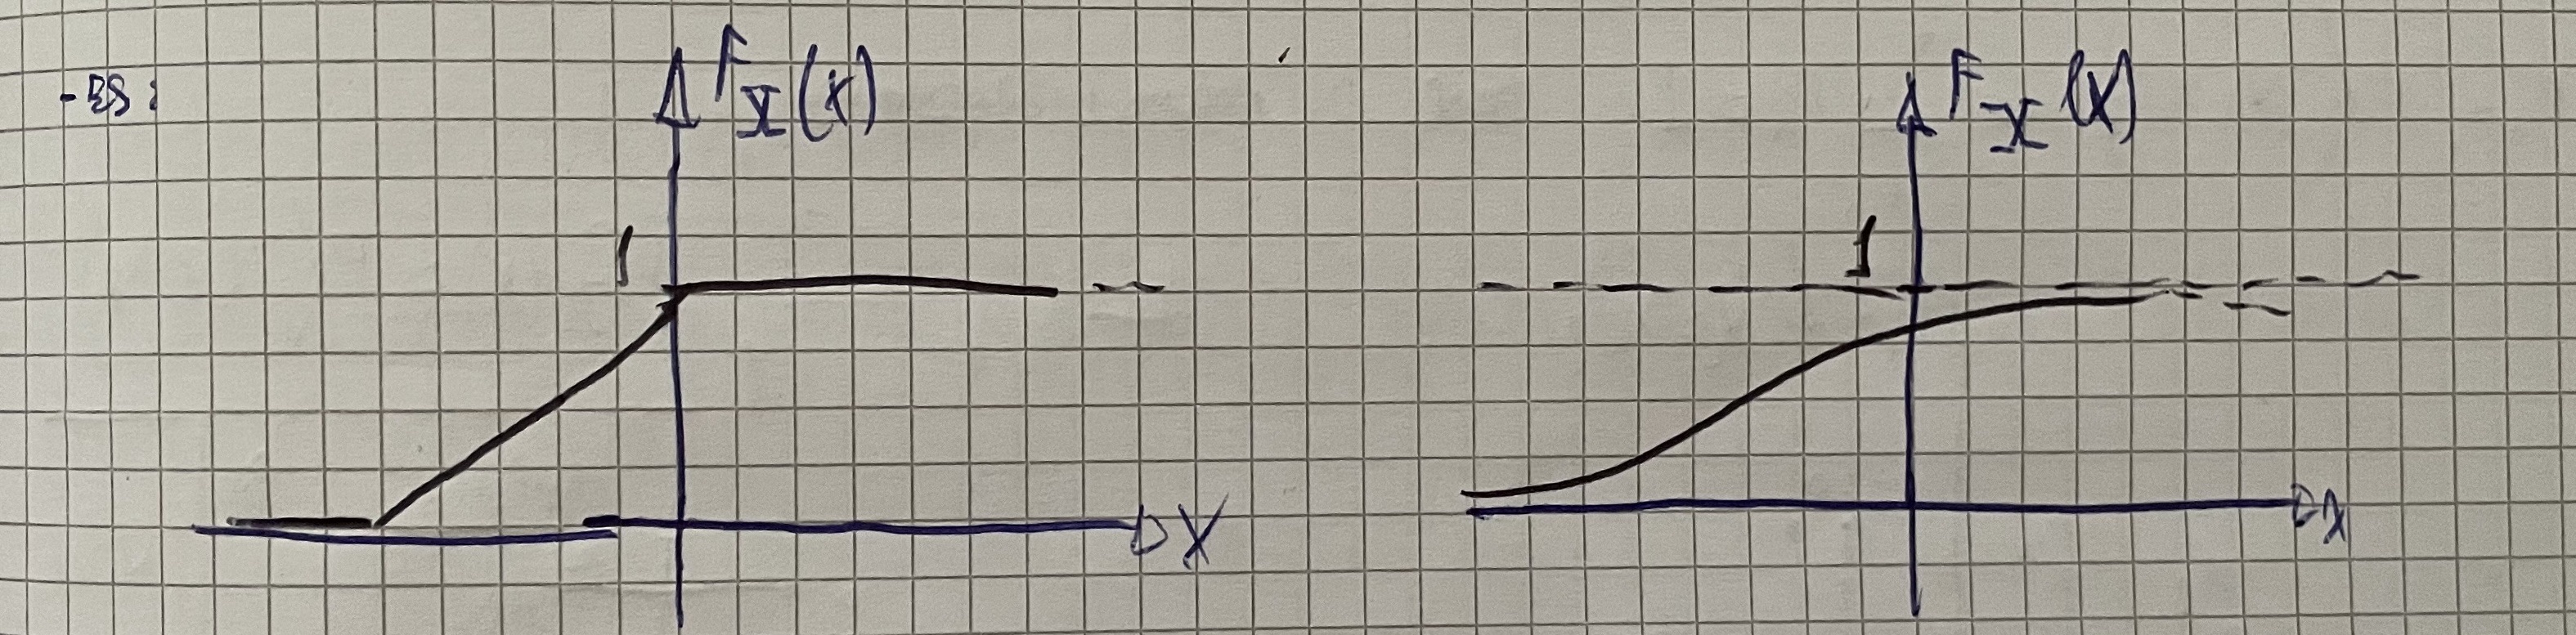 - ES:
F_X(x)
1
X
F_X(x)
1
X